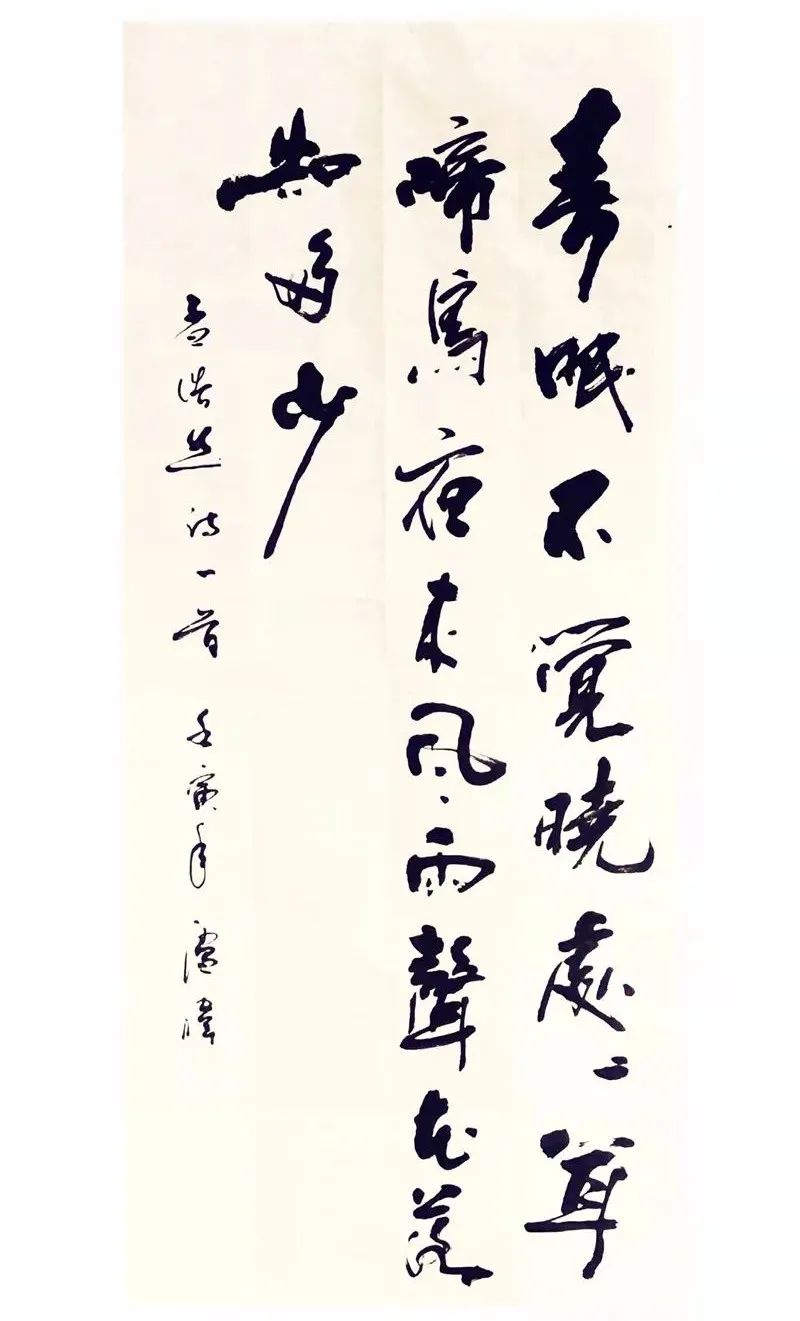 春眠不覺曉處々聞
啼鳥夜来风雨聲花落
知多少
孟浩然诗一首 壬寅年